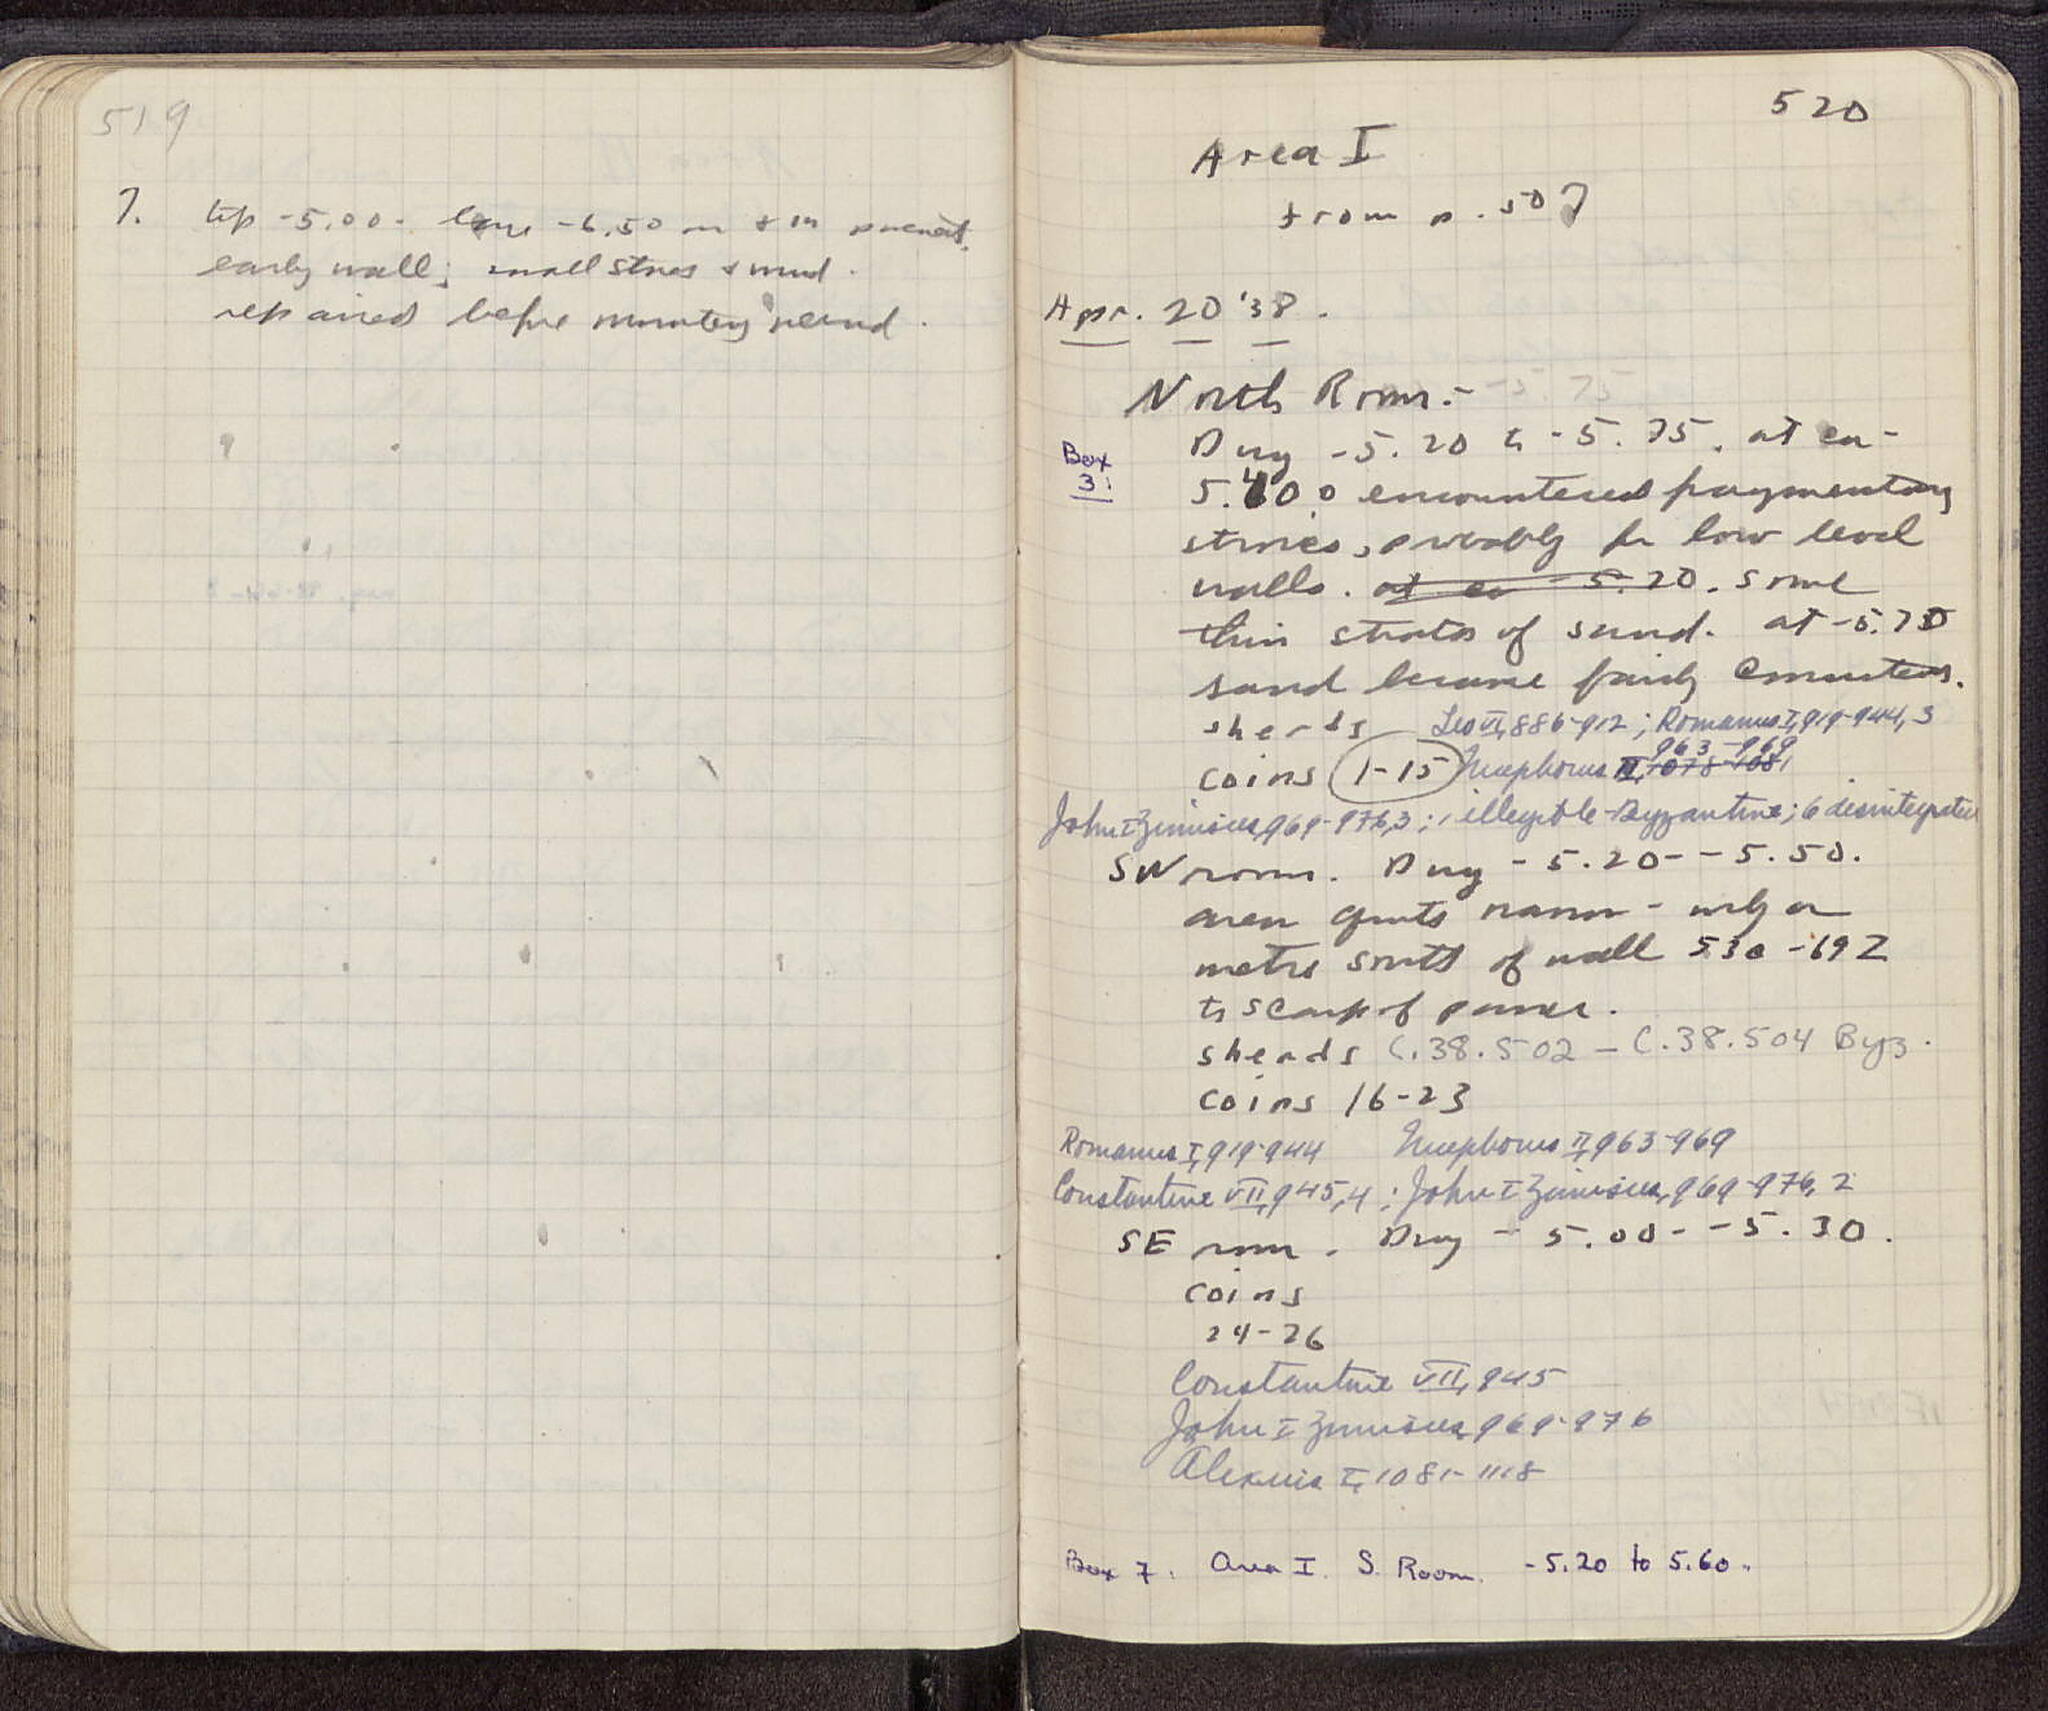 519
7. top -5.00 - -6.50 m + in
early wall; small stones & mud.
repaired before monastery period.
520
Area I
from p. 507
Apr. 20 '38.
North Room:-
Box
3:
Dug -5.20 to -5.75. at ca -
5.40 encountered fragmentary
stones, probably for low level
walls. at ca -5.20. some
thin stratas of sand. at -5.75
sand became fairly
sherds Leo VI, 886-912; Romanus I, 919-944, 3
963-969
coins 1-15 Nicephorus II, 1078-1081
John I Zimisces, 969-976, 3; 1 illegible Byzantine; 6 desintegrated
SW room. Dug -5.20 - -5.50.
area quite narrow - only a
metre south of wall 530-692
to scarp of
sherds C.38.502 - C.38.504 Byz.
coins 16-23
Romanus I, 919-944 Nicephorus II, 963-969
Constantine VII, 945, 4; John I Zimisces, 969-976, 2
SE room. Dug -5.00 - -5.30.
coins
24-26
Constantine VII, 945
John I Zimisces 969-976
Alexius I, 1081-1118
Box 7. Area I. S. Room. -5.20 to 5.60.